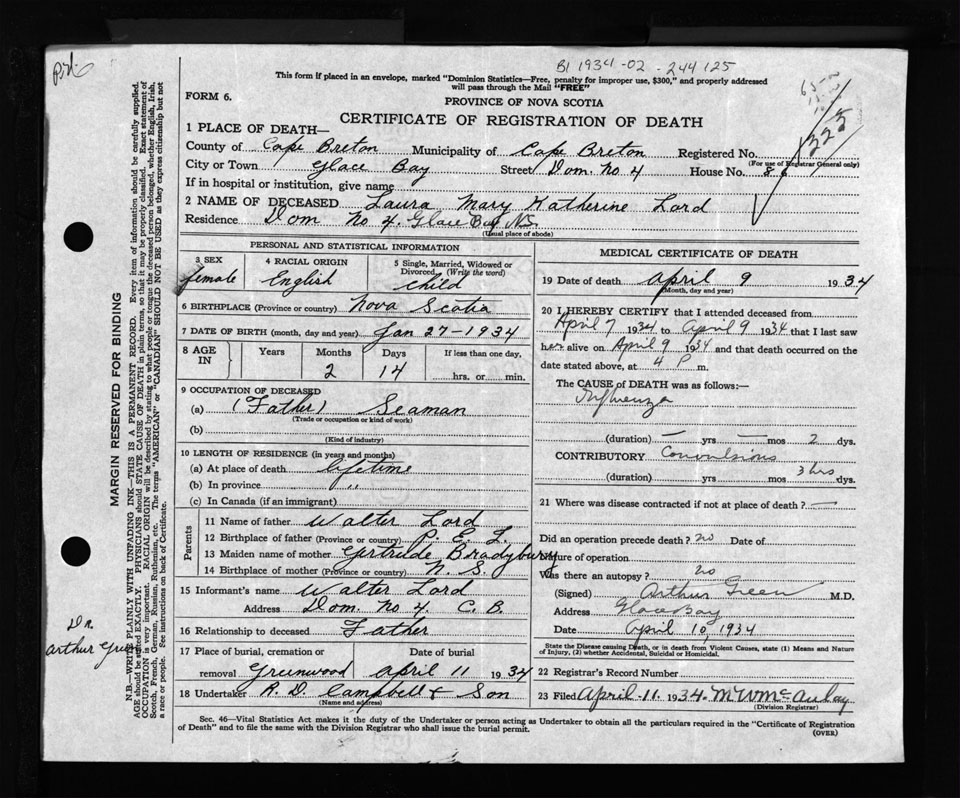 B1 1934-02-244125
This form if placed in an envelope, marked "Dominion Statistics—Free, penalty for improper use, $300," and properly addressed
will pass through the Mail "FREE"
FORM 6.
PROVINCE OF NOVA SCOTIA
CERTIFICATE OF REGISTRATION OF DEATH
1 PLACE OF DEATH—
County of Cape Breton Municipality of Cape Breton Registered No. 325
(For use of Registrar General only)
City or Town Glace Bay Street Dom. No 4 House No. 86
If in hospital or institution, give name
2 NAME OF DECEASED Laura Mary Katherine Lord
Residence Dom No 4. Glace Bay N.S.
(Usual place of abode)
PERSONAL AND STATISTICAL INFORMATION
3 SEX female
4 RACIAL ORIGIN English
5 Single, Married, Widowed or
Divorced, (Write the word)
child
6 BIRTHPLACE (Province or country) Nova Scotia
7 DATE OF BIRTH (month, day and year) Jan 27-1934
8 AGE IN Years Months 2 Days 14 If less than one day,
hrs. or min.
9 OCCUPATION OF DECEASED
(a) (Father) Seaman
(Trade or occupation or kind of work)
(b)
(Kind of industry)
10 LENGTH OF RESIDENCE (in years and months)
(a) At place of death lifetime
(b) In province "
(c) In Canada (if an immigrant)
Parents
11 Name of father Walter Lord
12 Birthplace of father (Province or country) P. E. I.
13 Maiden name of mother Gertrilde Bradybury
14 Birthplace of mother (Province or country) N. S.
15 Informant's name Walter Lord
Address Dom. No 4. C. B.
16 Relationship to deceased Father
17 Place of burial, cremation or removal Greenwood
Date of burial April 11 1934
18 Undertaker R. D. Campbell & Son
(Name and address)
MEDICAL CERTIFICATE OF DEATH
19 Date of death April 9 1934
(Month, day and year)
20 I HEREBY CERTIFY that I attended deceased from
April 7 1934 to April 9 1934 that I last saw
her alive on April 9 1934 and that death occurred on the
date stated above, at 4 P m.
The CAUSE OF DEATH was as follows:—
Influenza
(duration) — yrs — mos 2 dys.
CONTRIBUTORY Convulsions
(duration) yrs mos 3 hrs dys.
21 Where was disease contracted if not at place of death? —
Did an operation precede death? no Date of
Nature of operation
Was there an autopsy? no
(Signed) Arthur Green M.D.
Address Glace Bay
Date April 10, 1934
State the Disease causing Death, or in death from Violent Causes, state (1) Means and Nature
of Injury, (2) whether Accidental, Suicidal or Homicidal.
22 Registrar's Record No.
23 Filed April 11 1934. M W McAulay
(Division Registrar)
Sec. 46—Vital Statistics Act makes it the duty of the Undertaker or person acting as Undertaker to obtain all the particulars required in the "Certificate of Registration
of Death" and to file the same with the Division Registrar who shall issue the burial permit.
(OVER)
MARGIN RESERVED FOR BINDING
N.B.—WRITE PLAINLY WITH UNFADING INK—THIS IS A PERMANENT RECORD. Every item of information should be carefully supplied.
AGE should be stated EXACTLY. PHYSICIANS should STATE CAUSE OF DEATH in plain terms, so that it may be properly classified. Exact statement of
OCCUPATION is very important. RACIAL ORIGIN will be described by stating to what people or tongue the deceased person belonged, whether English, Irish,
Scotch, French, German, Russian, Ruthenian, etc. The terms "AMERICAN" or "CANADIAN" SHOULD NOT BE USED as they express citizenship but not
a race or people. See instructions on back of Certificate.
Dr.
Arthur Green